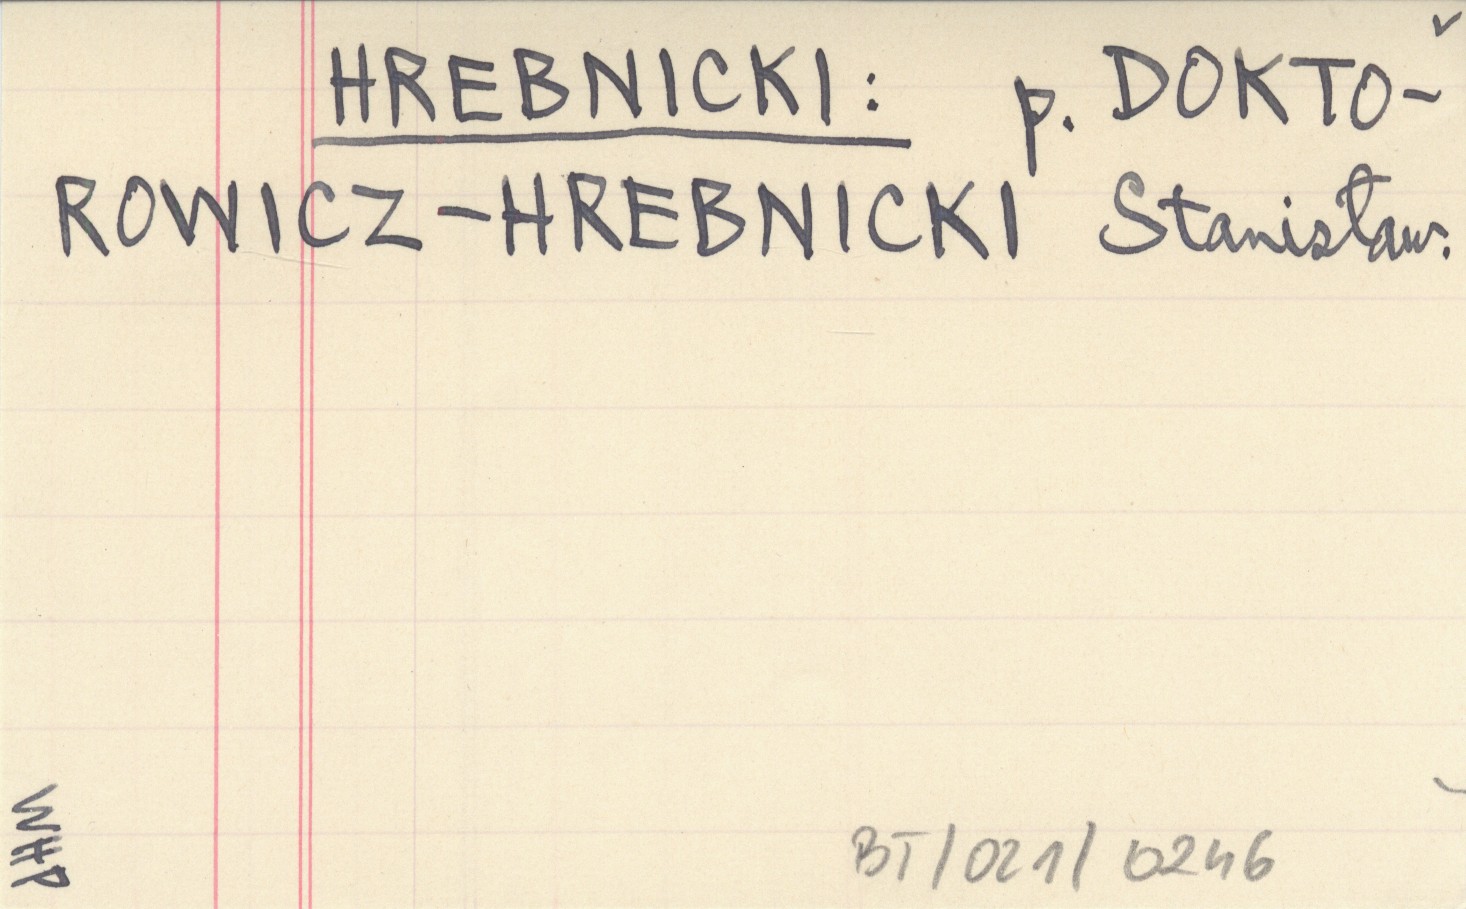 HREBNICKI: p. DOKTO-
ROWICZ-HREBNICKI Stanisław.
WHP
BT/021/0246